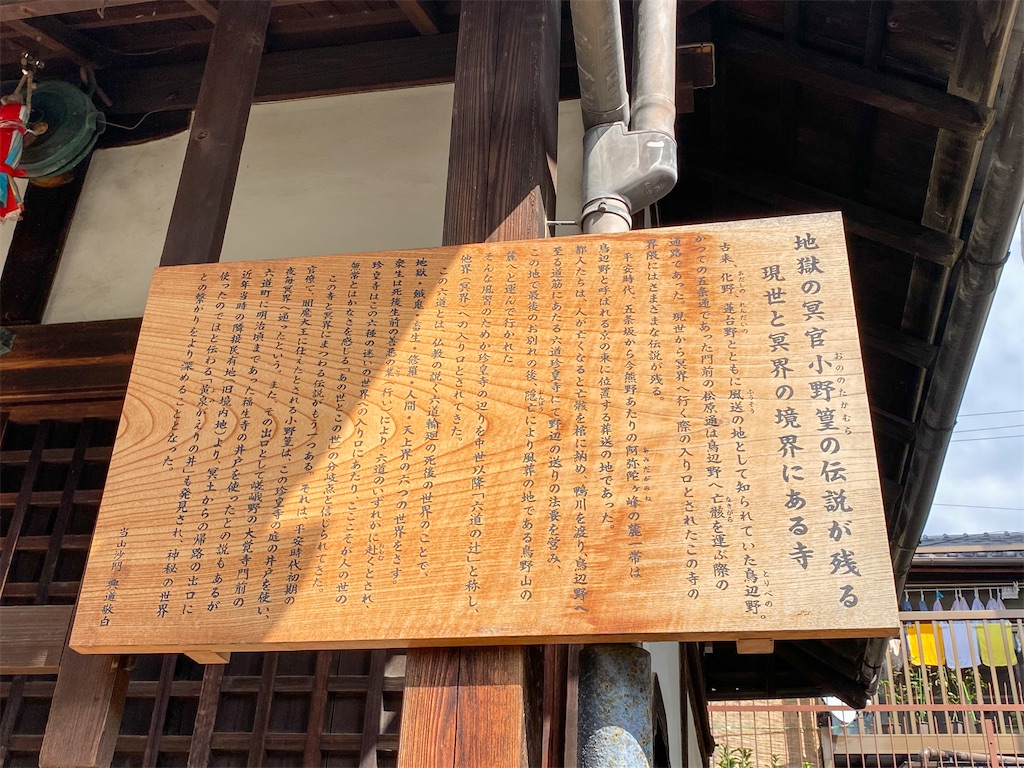 おののたかむら
地獄の冥官小野篁の伝説が残る
現世と冥界の境界にある寺
あだしの れんだいの ふうそう とりべの
古来、化野、蓮台野とともに風送の地として知られていた鳥辺野。
なきがら
かつての五条通であった門前の松原通は鳥辺野へ亡骸を運ぶ際の
通路であった。現世から冥界へ行く際の入り口とされたこの寺の
界隈にはさまざまな伝説が残る。
あみだがみね
平安時代、五条坂から今熊野あたりの阿弥陀ヶ峰の麓一帯は
鳥辺野と呼ばれる京の東に位置する葬送の地であった。
都人たちは、人が亡くなると亡骸を棺に納め、鴨川を渡り、鳥辺野へ
至る道筋にあたる六道珍皇寺にて野辺の送りの法養を営み、
おんぼう
この地で最後のお別れの後、隠亡により風葬の地である鳥野山の
麓へと運んで行かれた。
そんな風習のためか珍皇寺の辺りを中世以降「六道の辻」と称し、
他界(冥界)への入り口とされてきた。
この六道とは、仏教の説く六道輪廻の死後の世界のことで、
地獄・餓鬼・畜生・修羅・人間・天上界の六つの世界をさす。
衆生は死後生前の善悪の業(行い)により、六道のいずれかに赴くとされ、
珍皇寺はこの六種の迷いの世界への入り口にあたり、ここそが人の世の
無常とはかなさを感じる「あの世」との世の分岐点と信じられてきた。
この寺と冥界にまつわる伝説がもう一つある。それは、平安時代初期の
官僚で、閻魔大王に仕えたとされる小野篁は、この珍皇寺の庭の井戸を使い、
夜毎冥界へ通ったという。また、その出口として嵯峨野の大覚寺門前の
六道町に明治頃まであった福生寺の井戸を使ったとの説もあるが
近年当時の隣接民有地(旧境内地)より、冥土からの帰路の出口に
使ったのではと伝わる「黄泉がえりの井」も発見され、神秘の世界
との繋がりをより深めることとなった。
当山沙門 興道敬白